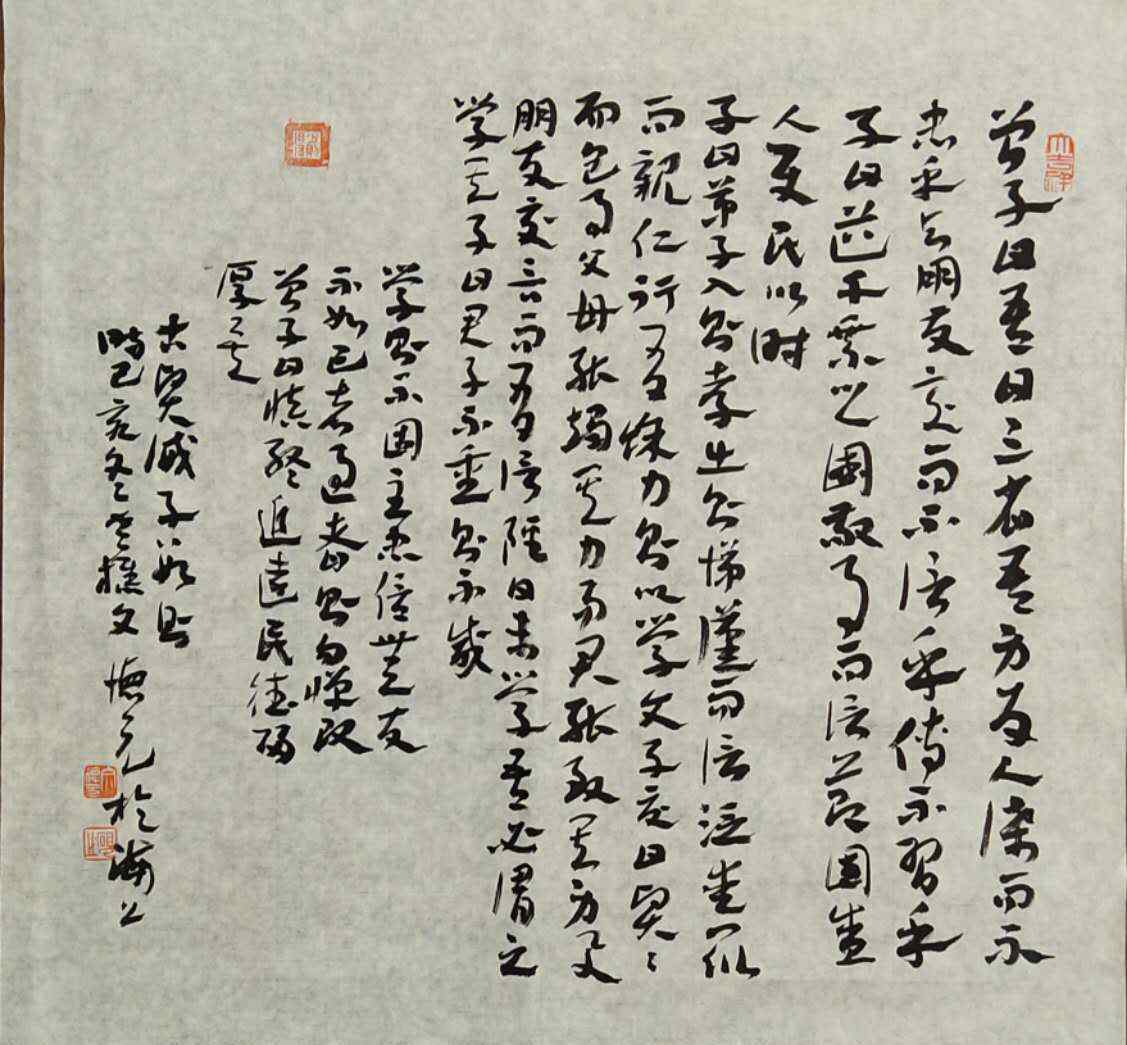 曾子曰吾日三省吾身为人谋而不
忠乎与朋友交而不信乎传不习乎
子曰道千乘之国敬事而信节用爱
人使民以时
子曰弟子入则孝出则悌谨而信泛爱众
而亲仁行有余力则以学文子夏曰贤贤
易色事父母能竭其力事君能致其身与
朋友交言而有信虽曰未学吾必谓之
学矣子曰君子不重则不威
学则不固主忠信无友
不如己者过则勿惮改
曾子曰慎终追远民德归
厚矣
时己亥冬 文 德元於海上